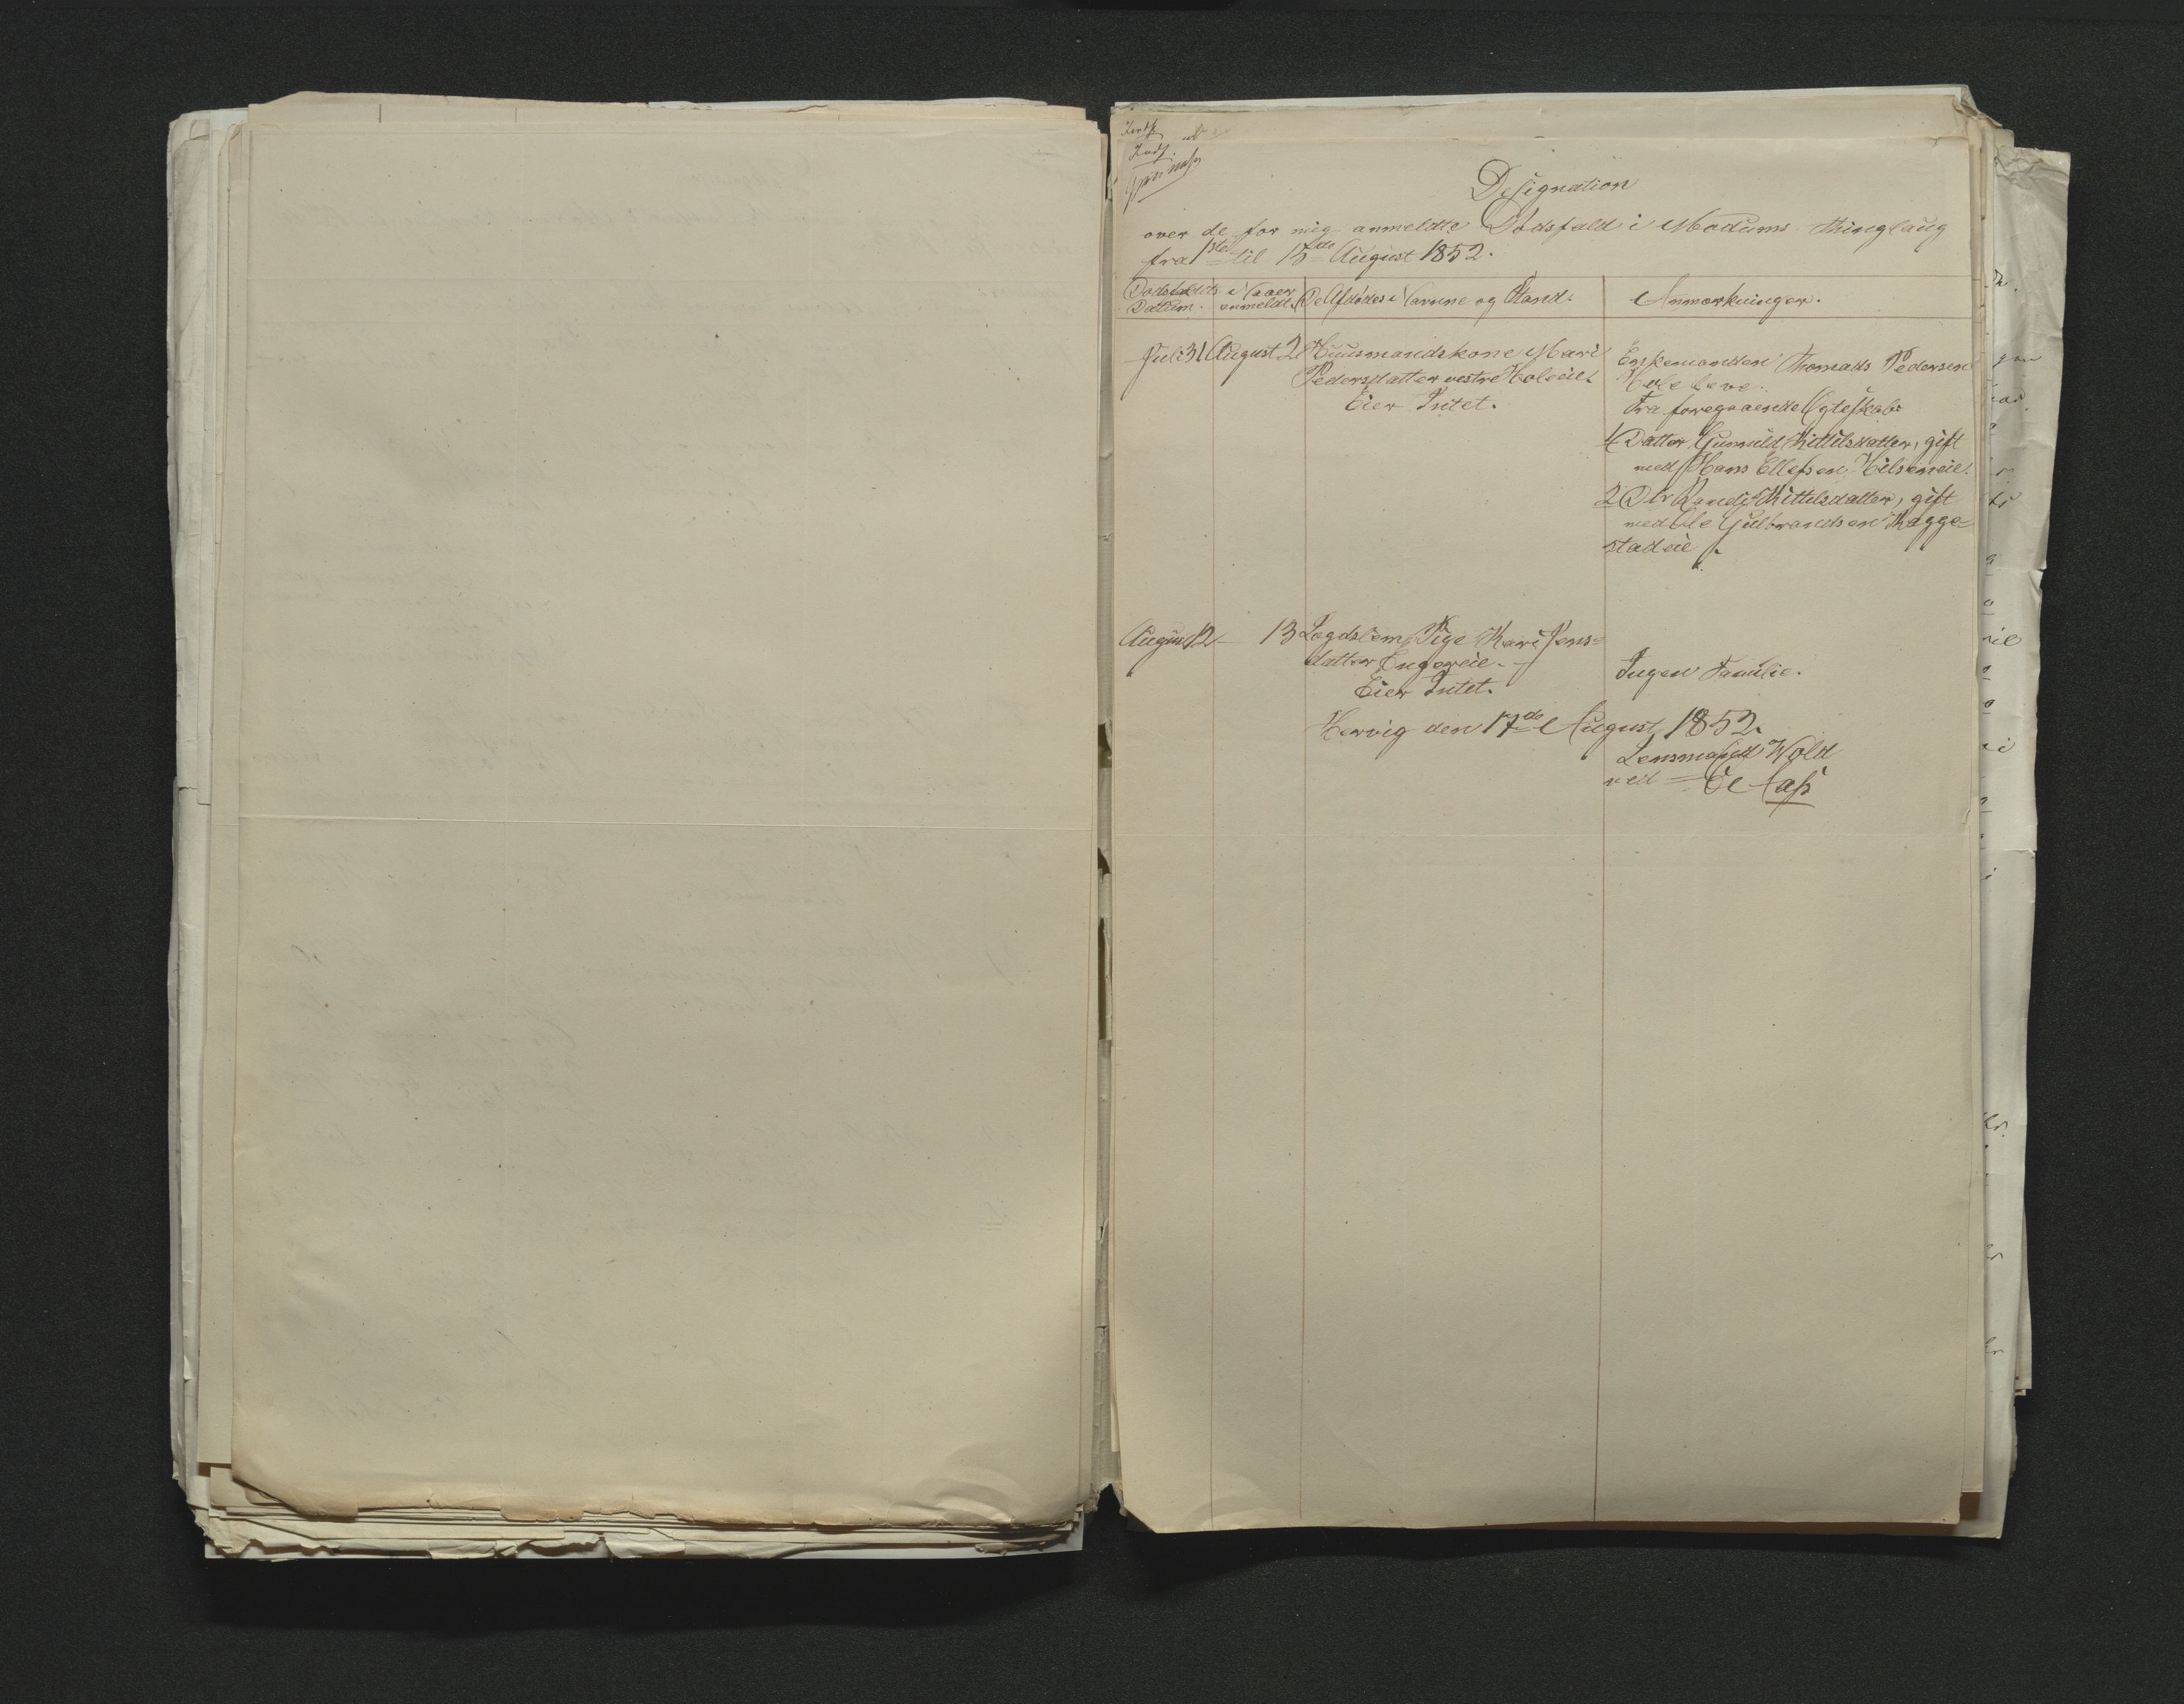 Designation
over de for mig anmeldte Dødsfald i Modums thinglaug
fra 1ste til 15de August 1852.
Dødsfaldets Datum.
Naar anmeldt.
De Afdødes Navne og Stand.
Anmærkninger.
Juli 31
August 2
Huusmandskone Mari
Pedersdatter vestre Holeeie.
Eier Intet.
Enkemanden Thomads Pedersen
Hole
Fra foregaaende Egteskab:
1 Datter Gunnild Kittilsdatter, gift
med Hans Ellefsen Hilseneie.
2 Dtr Randi Kittilsdatter, gift
med Ole Gulbrandsen Kagge=
stadeie.
August 12
13
Lægdslem Pige Kari Jens=
datter Engereie.
Eier Intet.
Ingen Familie.
Hervig den 17de August 1852.
Lensmand Wold
ved